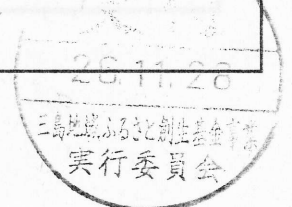 26.11.28
三島地域ふるさと創生基金事業
実行委員会